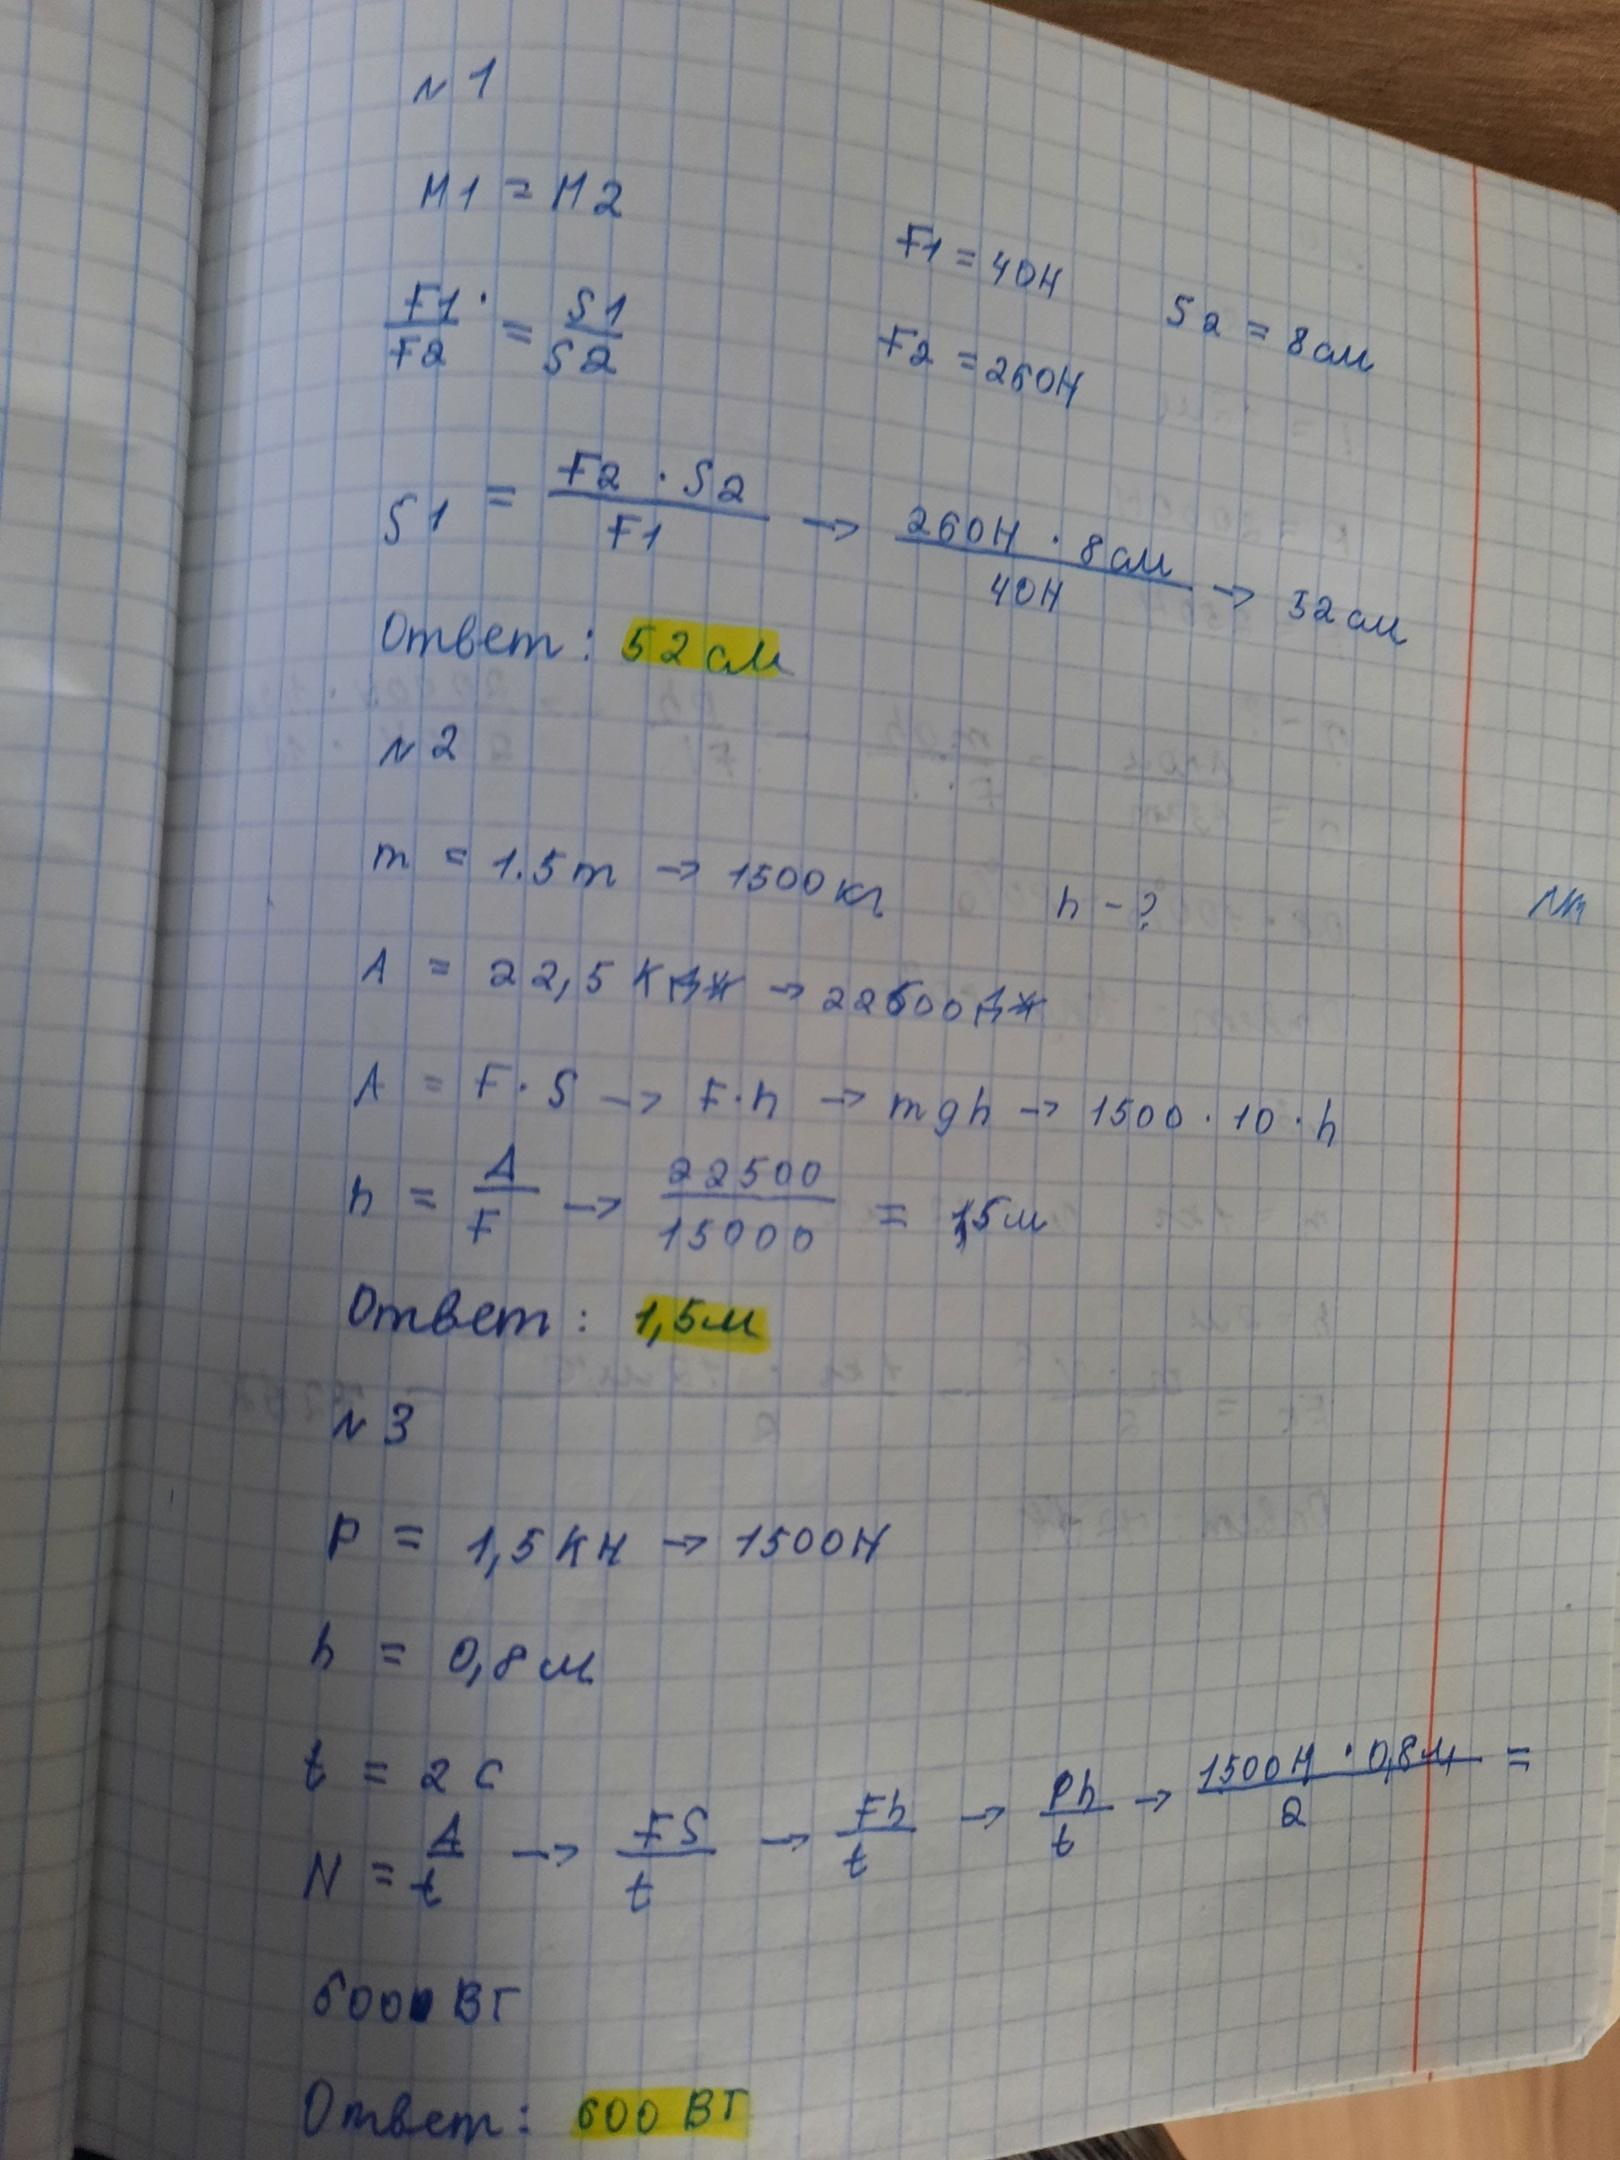 N 1
M1 = M2
F1 = 40Н
S2 = 8см
F1/F2 = S1/S2
F2 = 260Н
S1 = F2 · S2/F1 → 260Н · 8см/40Н → 52см
Ответ: 52см
N 2
m = 1.5т → 1500кг h - ?
A = 22,5 КДж → 22500Дж
A = F · S → F · h → mgh → 1500 · 10 · h
h = A/F → 22500/15000 = 1,5м
Ответ: 1,5м
N 3
P = 1,5 КН → 1500Н
h = 0,8м
t = 2 с
N = A/t → FS/t → Fh/t → Ph/t → 1500Н · 0,8м/2 =
600 ВТ
Ответ: 600 ВТ